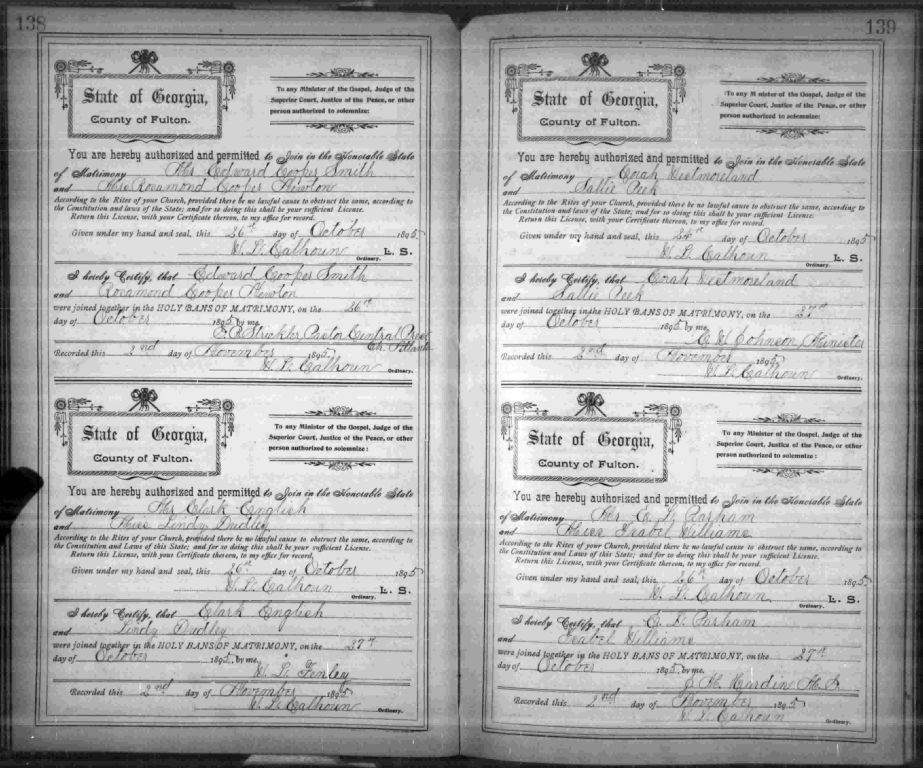 138
State of Georgia,
County of Fulton.
To any Minister of the Gospel, Judge of the
Superior Court, Justice of the Peace, or other
person authorized to solemnize:
You are hereby authorized and permitted to Join in the Honorable State
of Matrimony Mr Edward Cooper Smith
and Miss Rosamond Cooper Newton
According to the Rites of your Church, provided there be no lawful cause to obstruct the same, according to
the Constitution and laws of the State; and for so doing this shall be your sufficient License.
Return this License, with your Certificate thereon, to my office for record.
Given under my hand and seal, this 26th day of October 1895
W. L. Calhoun L. S.
Ordinary.
I hereby Certify, that Edward Cooper Smith
and Rosamond Cooper Newton
were joined together in the HOLY BANS OF MATRIMONY, on the 26th
day of October 1895 by me.
Strickler Pastor Central Pres
Ch. Atlanta
Recorded this 2nd day of November 1895
W. L. Calhoun
Ordinary.
State of Georgia,
County of Fulton.
To any Minister of the Gospel, Judge of the
Superior Court, Justice of the Peace, or other
person authorized to solemnize:
You are hereby authorized and permitted to Join in the Honorable State
of Matrimony Mr Clark English
and Miss Lindy Dudley
According to the Rites of your Church, provided there be no lawful cause to obstruct the same, according to
the Constitution and Laws of this State; and for so doing this shall be your sufficient License.
Return this License, with your Certificate thereon, to my office for record.
Given under my hand and seal, this 26th day of October 1895
W. L. Calhoun L. S.
Ordinary.
I hereby Certify, that Clark English
and Lindy Dudley
were joined together in the HOLY BANS OF MATRIMONY, on the 27th
day of October 1895, by me.
W. L. Fenley
Recorded this 2nd day of November 1895
W. L. Calhoun
Ordinary.
139
State of Georgia,
County of Fulton.
To any Minister of the Gospel, Judge of the
Superior Court, Justice of the Peace, or other
person authorized to solemnize:
You are hereby authorized and permitted to Join in the Honorable State
of Matrimony Westmoreland
and Sallie Peek
According to the Rites of your Church, provided there be no lawful cause to obstruct the same, according to
the Constitution and laws of the State; and for so doing this shall be your sufficient License.
Return this License, with your Certificate thereon, to my office for record.
Given under my hand and seal, this 24th day of October 1895
W. L. Calhoun L. S.
Ordinary.
I hereby Certify, that Westmoreland
and Sallie Peek
were joined together in the HOLY BANS OF MATRIMONY, on the 27th
day of October 1895 by me,
Johnson, Minister
Recorded this 2nd day of November 1895
W. L. Calhoun
Ordinary.
State of Georgia,
County of Fulton.
To any Minister of the Gospel, Judge of the
Superior Court, Justice of the Peace, or other
person authorized to solemnize:
You are hereby authorized and permitted to Join in the Honorable State
of Matrimony Mr E. L. Parham
and Miss Isabel Williams
According to the Rites of your Church, provided there be no lawful cause to obstruct the same, according to
the Constitution and Laws of this State; and for so doing this shall be your sufficient License.
Return this License, with your Certificate thereon, to my office for record.
Given under my hand and seal, this 26th day of October 1895
W. L. Calhoun L. S.
Ordinary.
I hereby Certify, that E. L. Parham
and Isabel Williams
were joined together in the HOLY BANS OF MATRIMONY, on the 27th
day of October 1895 by me.
J. M. Hardin
Recorded this 2nd day of November 1895
W. L. Calhoun
Ordinary.